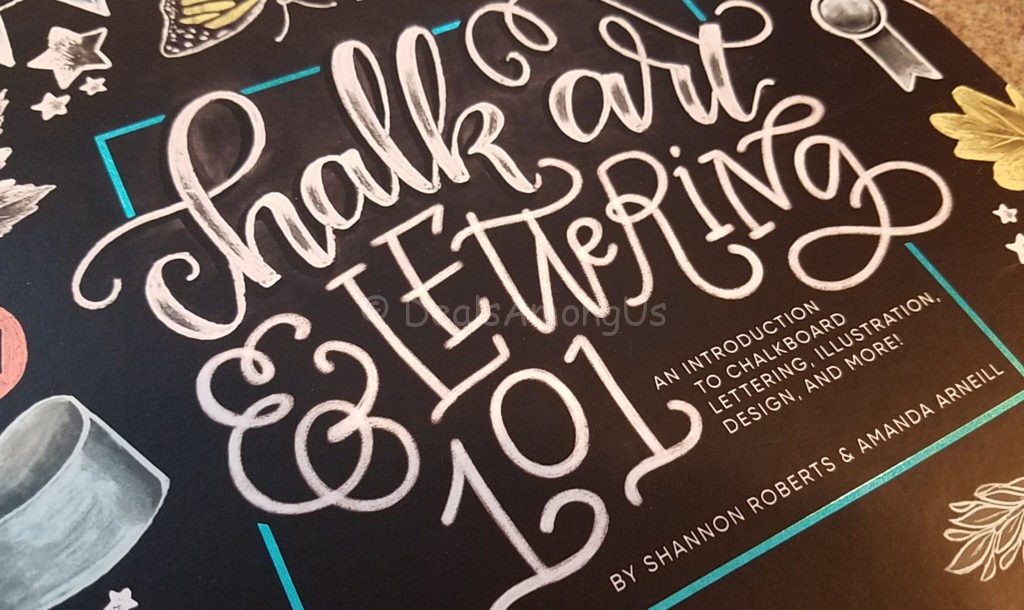 chalk art
& LETTERING
101
AN INTRODUCTION
TO CHALKBOARD
LETTERING, ILLUSTRATION,
DESIGN, AND MORE!
BY SHANNON ROBERTS & AMANDA ARNEILL
© DealsAmongUs